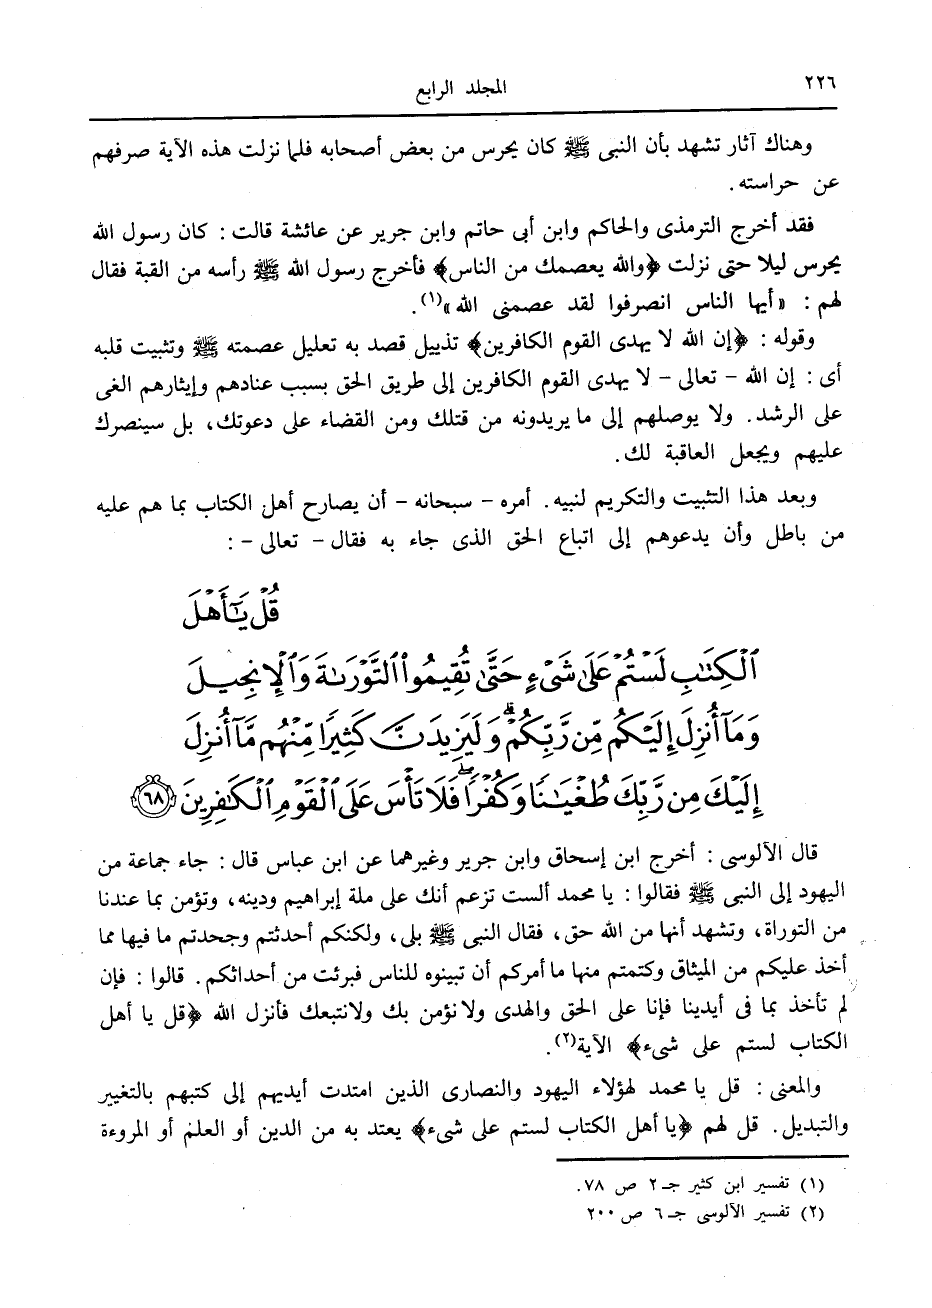 ٢٢٦
المجلد الرابع
وهناك آثار تشهد بأن النبى ﷺ كان يحرس من بعض أصحابه فلما نزلت هذه الآية صرفهم
عن حراسته.
فقد أخرج الترمذى والحاكم وابن أبى حاتم وابن جرير عن عائشة قالت : كان رسول الله
يحرس ليلا حتى نزلت ﴿والله يعصمك من الناس﴾ فأخرج رسول الله ﷺ رأسه من القبة فقال
لهم : «أيها الناس انصرفوا لقد عصمنى الله»(١).
وقوله : ﴿إن الله لا يهدى القوم الكافرين﴾ تذييل قصد به تعليل عصمته ﷺ وتثبيت قلبه
أى : إن الله – تعالى – لا يهدى القوم الكافرين إلى طريق الحق بسبب عنادهم وإيثارهم الغى
على الرشد. ولا يوصلهم إلى ما يريدونه من قتلك ومن القضاء على دعوتك، بل سينصرك
عليهم ويجعل العاقبة لك.
وبعد هذا التثبيت والتكريم لنبيه. أمره – سبحانه – أن يصارح أهل الكتاب بما هم عليه
من باطل وأن يدعوهم إلى اتباع الحق الذى جاء به فقال – تعالى – :
قُلْ يَٰٓأَهْلَ
ٱلْكِتَٰبِ لَسْتُمْ عَلَىٰ شَىْءٍ حَتَّىٰ تُقِيمُوا۟ ٱلتَّوْرَىٰةَ وَٱلْإِنجِيلَ
وَمَآ أُنزِلَ إِلَيْكُم مِّن رَّبِّكُمْ ۗ وَلَيَزِيدَنَّ كَثِيرًا مِّنْهُم مَّآ أُنزِلَ
إِلَيْكَ مِن رَّبِّكَ طُغْيَٰنًا وَكُفْرًا ۖ فَلَا تَأْسَ عَلَى ٱلْقَوْمِ ٱلْكَٰفِرِينَ ﴿٦٨﴾
قال الآلوسى : أخرج ابن إسحاق وابن جرير وغيرهما عن ابن عباس قال : جاء جماعة من
اليهود إلى النبى ﷺ فقالوا : يا محمد ألست تزعم أنك على ملة إبراهيم ودينه، وتؤمن بما عندنا
من التوراة، وتشهد أنها من الله حق، فقال النبى ﷺ بلى، ولكنكم أحدثتم وجحدتم ما فيها مما
أخذ عليكم من الميثاق وكتمتم منها ما أمركم أن تبينوه للناس فبرئت من أحداثكم. قالوا : فإن
لم تأخذ بما فى أيدينا فإنا على الحق والهدى ولا نؤمن بك ولا نتبعك فأنزل الله ﴿قل يا أهل
الكتاب لستم على شىء﴾ الآية(٢).
والمعنى : قل يا محمد لهؤلاء اليهود والنصارى الذين امتدت أيديهم إلى كتبهم بالتغيير
والتبديل. قل لهم ﴿يا أهل الكتاب لستم على شىء﴾ يعتد به من الدين أو العلم أو المروءة
(١) تفسير ابن كثير جـ ٢ ص ٧٨.
(٢) تفسير الآلوسى جـ ٦ ص ٢٠٠